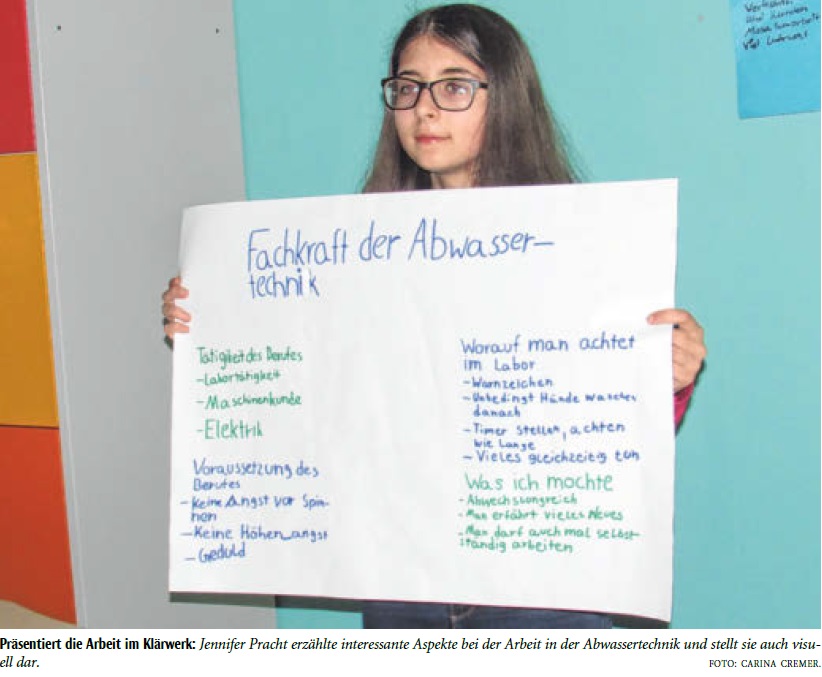 Verkaufen
viel
Fachkraft der Abwasser-
technik
Tätigkeit des Berufes
-Labortätigkeit
-Maschinenkunde
-Elektrik
Voraussetzung des
Berufes
-Keine Angst vor Spin-
nen
-Keine Höhenangst
-Geduld
Worauf man achtet
im Labor
-Warnzeichen
-Unbedingt Hände waschen
danach
-Timer stellen, achten
wie Lange
-Vieles gleichzeitig tun
Was ich mochte
-Abwechslungreich
-Man erfährt vieles Neues
-Man darf auch mal selbst-
ständig arbeiten
Präsentiert die Arbeit im Klärwerk: Jennifer Pracht erzählte interessante Aspekte bei der Arbeit in der Abwassertechnik und stellt sie auch visu-
ell dar.
FOTO: CARINA CREMER.